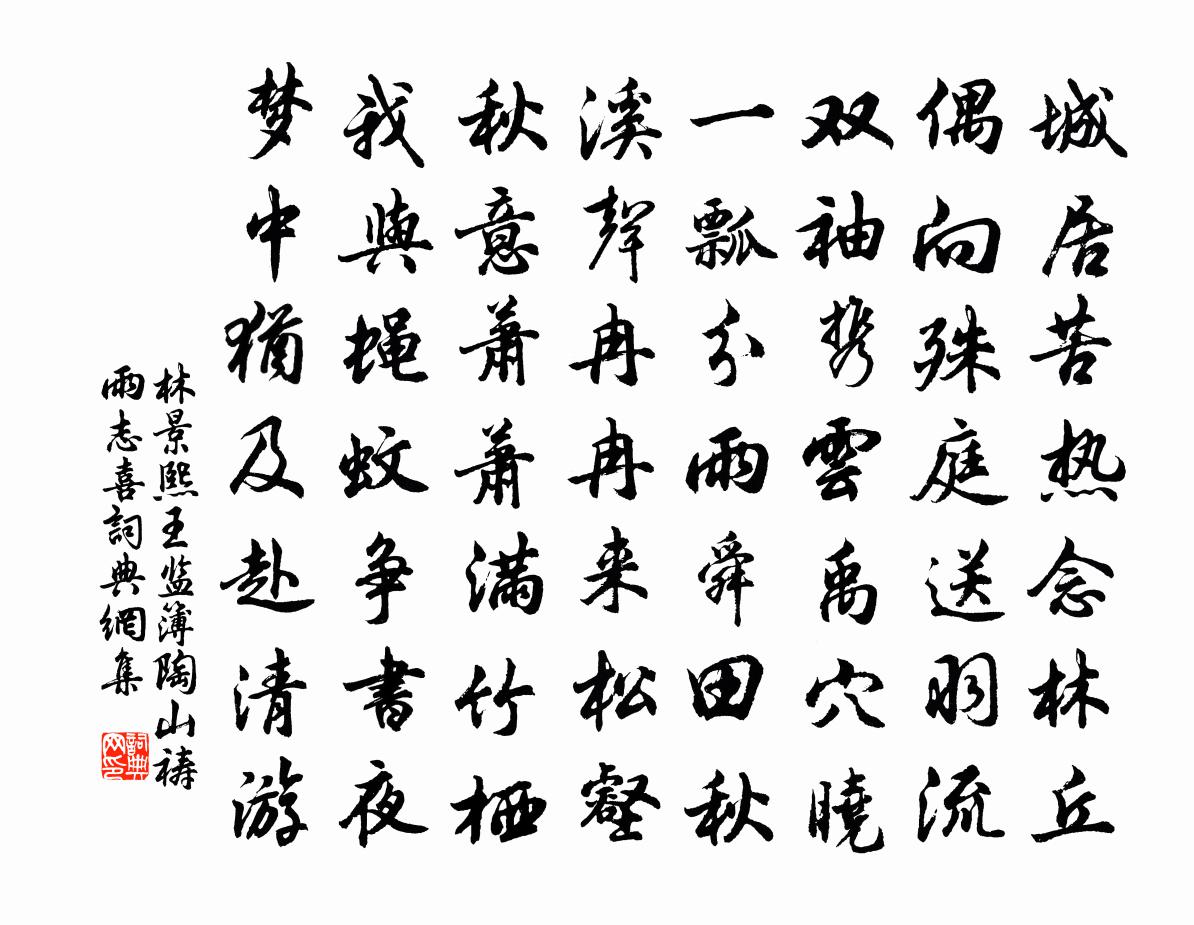 城居苦热念林丘
偶向殊庭送羽流
双袖携雲禹穴曉
一瓢分雨舜田秋
溪聲冉冉来松壑
秋意蕭蕭满竹栖
我與蝇蚊争書夜
梦中猶及赴清游
林景熙王监簿陶山禱
雨志喜詞典網集
詞典
网印